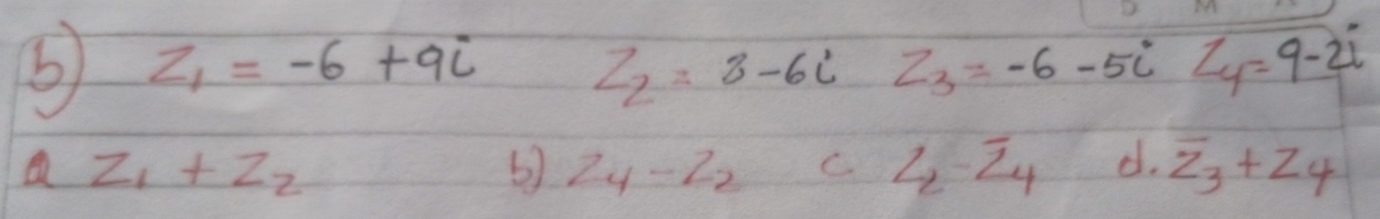 b) Z₁ = -6 + 9i Z₂ = 3 - 6i Z₃ = -6 - 5i Z₄ = 9 - 2i
a Z₁ + Z₂ b) Z₄ - Z₂ c Z₂ - Z̄₄ d. Z̄₃ + Z₄